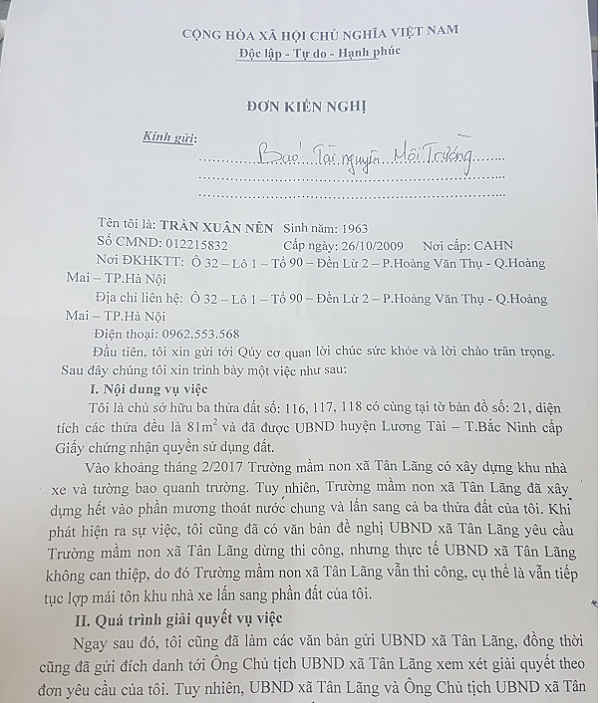 CỘNG HÒA XÃ HỘI CHỦ NGHĨA VIỆT NAM
Độc lập - Tự do - Hạnh phúc
ĐƠN KIẾN NGHỊ
Kính gửi:
Báo Tài nguyên Môi Trường
Tên tôi là: TRẦN XUÂN NÊN Sinh năm: 1963
Số CMND: 012215832 Cấp ngày: 26/10/2009 Nơi cấp: CAHN
Nơi ĐKHKTT: Ô 32 – Lô 1 – Tổ 90 – Đền Lừ 2 – P.Hoàng Văn Thụ - Q.Hoàng
Mai – TP.Hà Nội
Địa chỉ liên hệ: Ô 32 – Lô 1 – Tổ 90 – Đền Lừ 2 – P.Hoàng Văn Thụ - Q.Hoàng
Mai – TP.Hà Nội
Điện thoại: 0962.553.568
Đầu tiên, tôi xin gửi tới Qúy cơ quan lời chúc sức khỏe và lời chào trân trọng.
Sau đây chúng tôi xin trình bày một việc như sau:
I. Nội dung vụ việc
Tôi là chủ sở hữu ba thửa đất số: 116, 117, 118 có cùng tại tờ bản đồ số: 21, diện
tích các thửa đều là 81m² và đã được UBND huyện Lương Tài – T.Bắc Ninh cấp
Giấy chứng nhận quyền sử dụng đất.
Vào khoảng tháng 2/2017 Trường mầm non xã Tân Lãng có xây dựng khu nhà
xe và tường bao quanh trường. Tuy nhiên, Trường mầm non xã Tân Lãng đã xây
dựng hết vào phần mương thoát nước chung và lấn sang cả ba thửa đất của tôi. Khi
phát hiện ra sự việc, tôi cũng đã có văn bản đề nghị UBND xã Tân Lãng yêu cầu
Trường mầm non xã Tân Lãng dừng thi công, nhưng thực tế UBND xã Tân Lãng
không can thiệp, do đó Trường mầm non xã Tân Lãng vẫn thi công, cụ thể là vẫn tiếp
tục lợp mái tôn khu nhà xe lấn sang phần đất của tôi.
II. Quá trình giải quyết vụ việc
Ngay sau đó, tôi cũng đã làm các văn bản gửi UBND xã Tân Lãng, đồng thời
cũng đã gửi đích danh tới Ông Chủ tịch UBND xã Tân Lãng xem xét giải quyết theo
đơn yêu cầu của tôi. Tuy nhiên, UBND xã Tân Lãng và Ông Chủ tịch UBND xã Tân